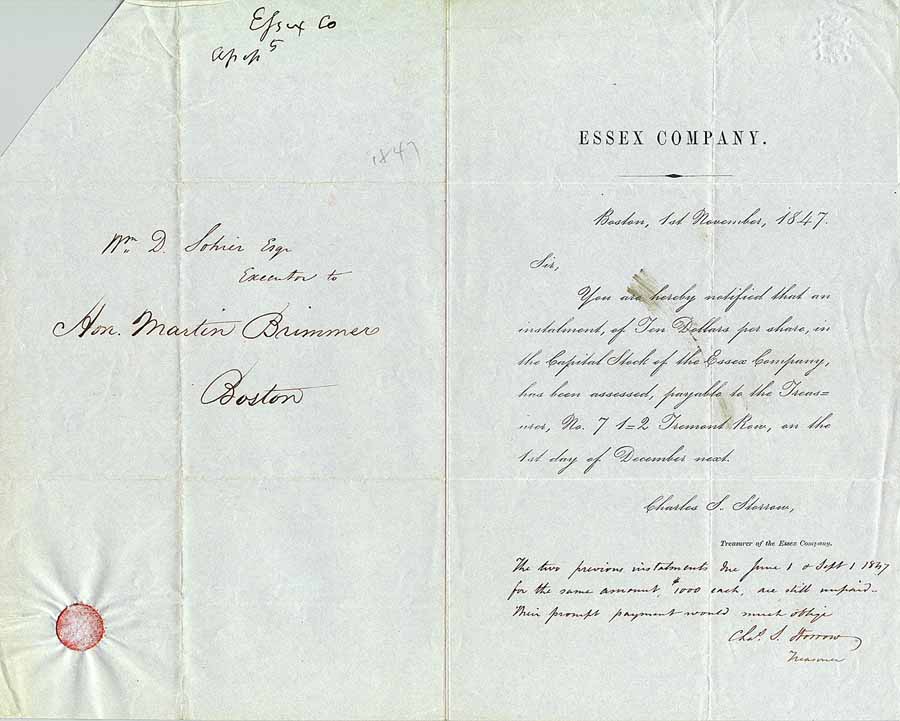 Essex Co
1847
Wm. D. Sohier Esqr
Executor to
Hon. Martin Brimmer
Boston
ESSEX COMPANY.
Boston, 1st November, 1847.
Sir,
You are hereby notified that an
instalment, of Ten Dollars per share, in
the Capital Stock of the Essex Company,
has been assessed, payable to the Treas=
urer, No. 7 1=2 Tremont Row, on the
1st day of December next.
Charles S. Storrow,
Treasurer of the Essex Company.
The two previous instalments due June 1 & Sept 1 1847
for the same amount, $1000 each, are still unpaid.
Their prompt payment would much oblige
Chas. S. Storrow
Treasurer